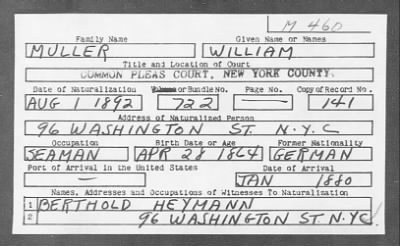 M 460
Family Name Given Name or Names
MULLER WILLIAM
Title and Location of Court
COMMON PLEAS COURT, NEW YORK COUNTY.
Date of Naturalization Volume or Bundle No. Page No. Copy of Record No.
AUG 1 1892 722 — 141
Address of Naturalized Person
96 WASHINGTON ST. N.Y.C
Occupation Birth Date or Age Former Nationality
SEAMAN APR 28 1864 GERMAN
Port of Arrival in the United States Date of Arrival
— JAN 1880
Names, Addresses and Occupations of Witnesses To Naturalization
1 BERTHOLD HEYMANN
2 96 WASHINGTON ST. N.Y.C